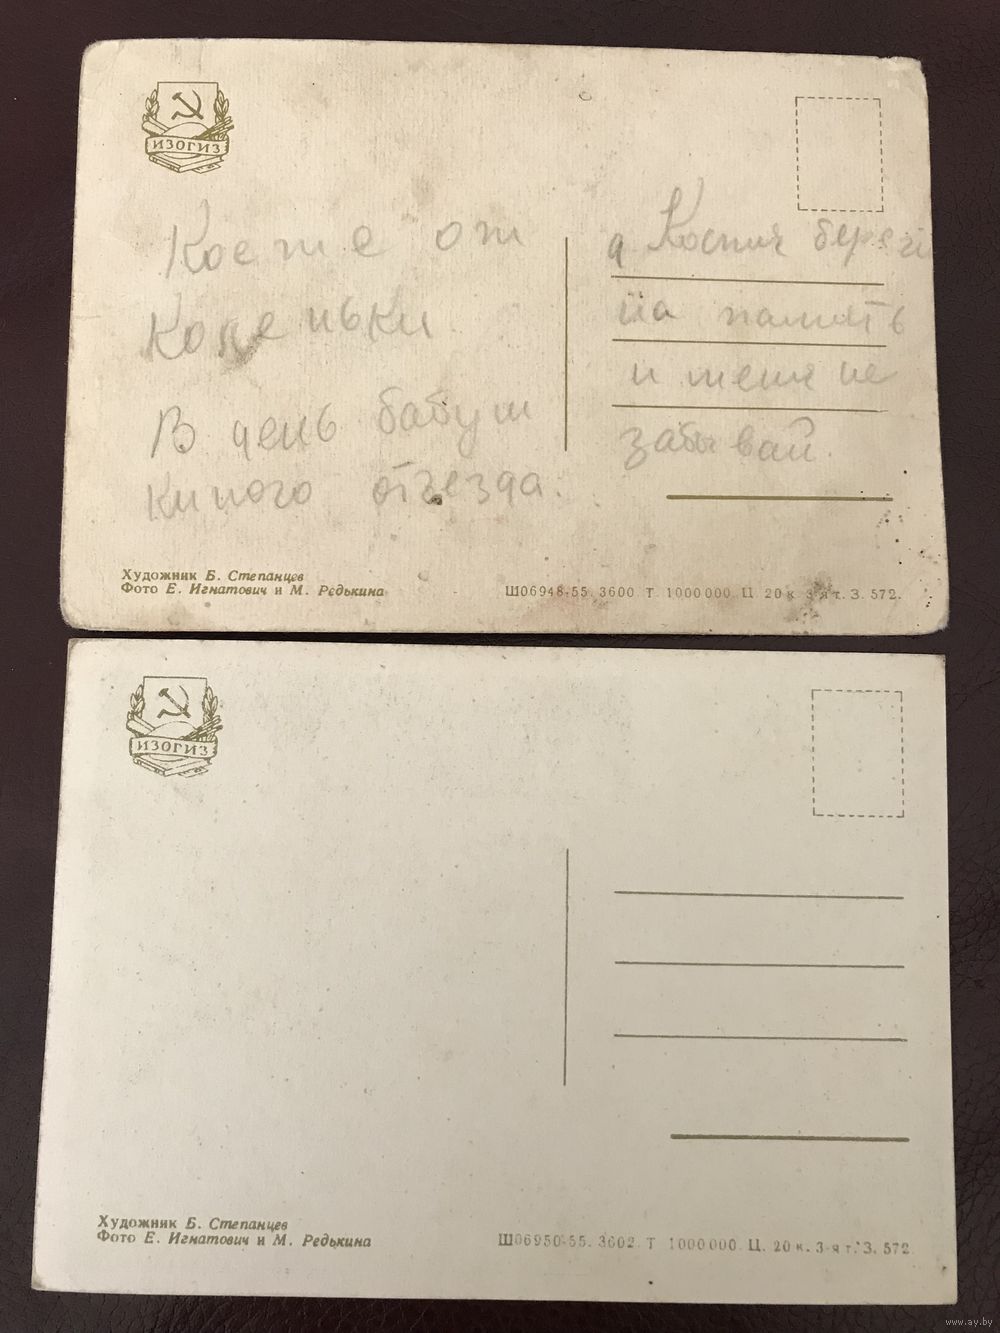 ИЗОГИЗ
Косте от
В день бабуш
киного отъезда.
Костя береги
на память
и меня не
забывай.
Художник Б. Степанцев
Фото Е. Игнатович и М. Редькина
Ш06948-55. 3600 Т. 1000000. Ц. 20 к. 3-я т. З. 572.
ИЗОГИЗ
Художник Б. Степанцев
Фото Е. Игнатович и М. Редькина
Ш06950-55. 3602. Т 1000000. Ц. 20 к. 3-я т. З. 572
www.ay.by